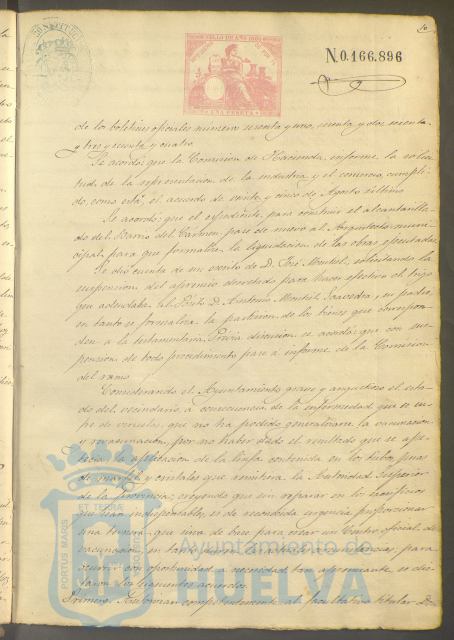 10
SELLO DE AÑO 1880
N.0.166.896
UNA PESETA
de los boletines oficiales números sesenta y uno, sesenta y dos, sesenta
y tres y sesenta y cuatro.
Se acordó: que la Comision de Hacienda, informe la solici-
tud de la representacion de la industria y el comercio, cumplien-
do, como está, el acuerdo de veinte y cinco de Agosto último.
Se acordó: que el espediente, para construir el alcantarilla-
do del Barrio del Carmen, pase de nuevo al Arquitecto muni-
cipal, para que formalice la liquidacion de las obras efectuadas.
Se dió cuenta de un escrito de D. José Montiel, solicitando la
suspension del apremio decretado para hacer efectivo el trigo
que adeudaba al Pósito D. Antonio Montiel Saavedra, su padre,
en tanto se formaliza la particion de los bienes que correspon-
den a la testamentaria. Prévia discusion, se acordó: que con sus-
pension de todo procedimiento pase á informe de la Comision
del ramo.
Considerando el Ayuntamiento grave y angustioso el esta-
do del vecindario, á consecuencia de la enfermedad que se su-
fre de viruelas, que no ha podido generalizarse la vacunacion
y revacunacion, por no haber dado el resultado que se ape-
tecia la aplicacion de la linfa contenida en los tubos, puas
de marfil y cristales que remitiera la Autoridad Superior
de la provincia; creyendo que sin reparar en los sacrificios
que sean indispensables, es de reconocida urgencia proporcionar
una ternera que sirva de base para crear un Centro oficial de
vacunacion, en tanto para
ocurrir con oportunidad á necesidad tan apremiante, se dic-
taron los siguientes acuerdos.
Primero. Autorizar competentemente al facultativo titular D.
PORTUS MARIS
ET TERRAE
Ayuntamiento de
HUELVA